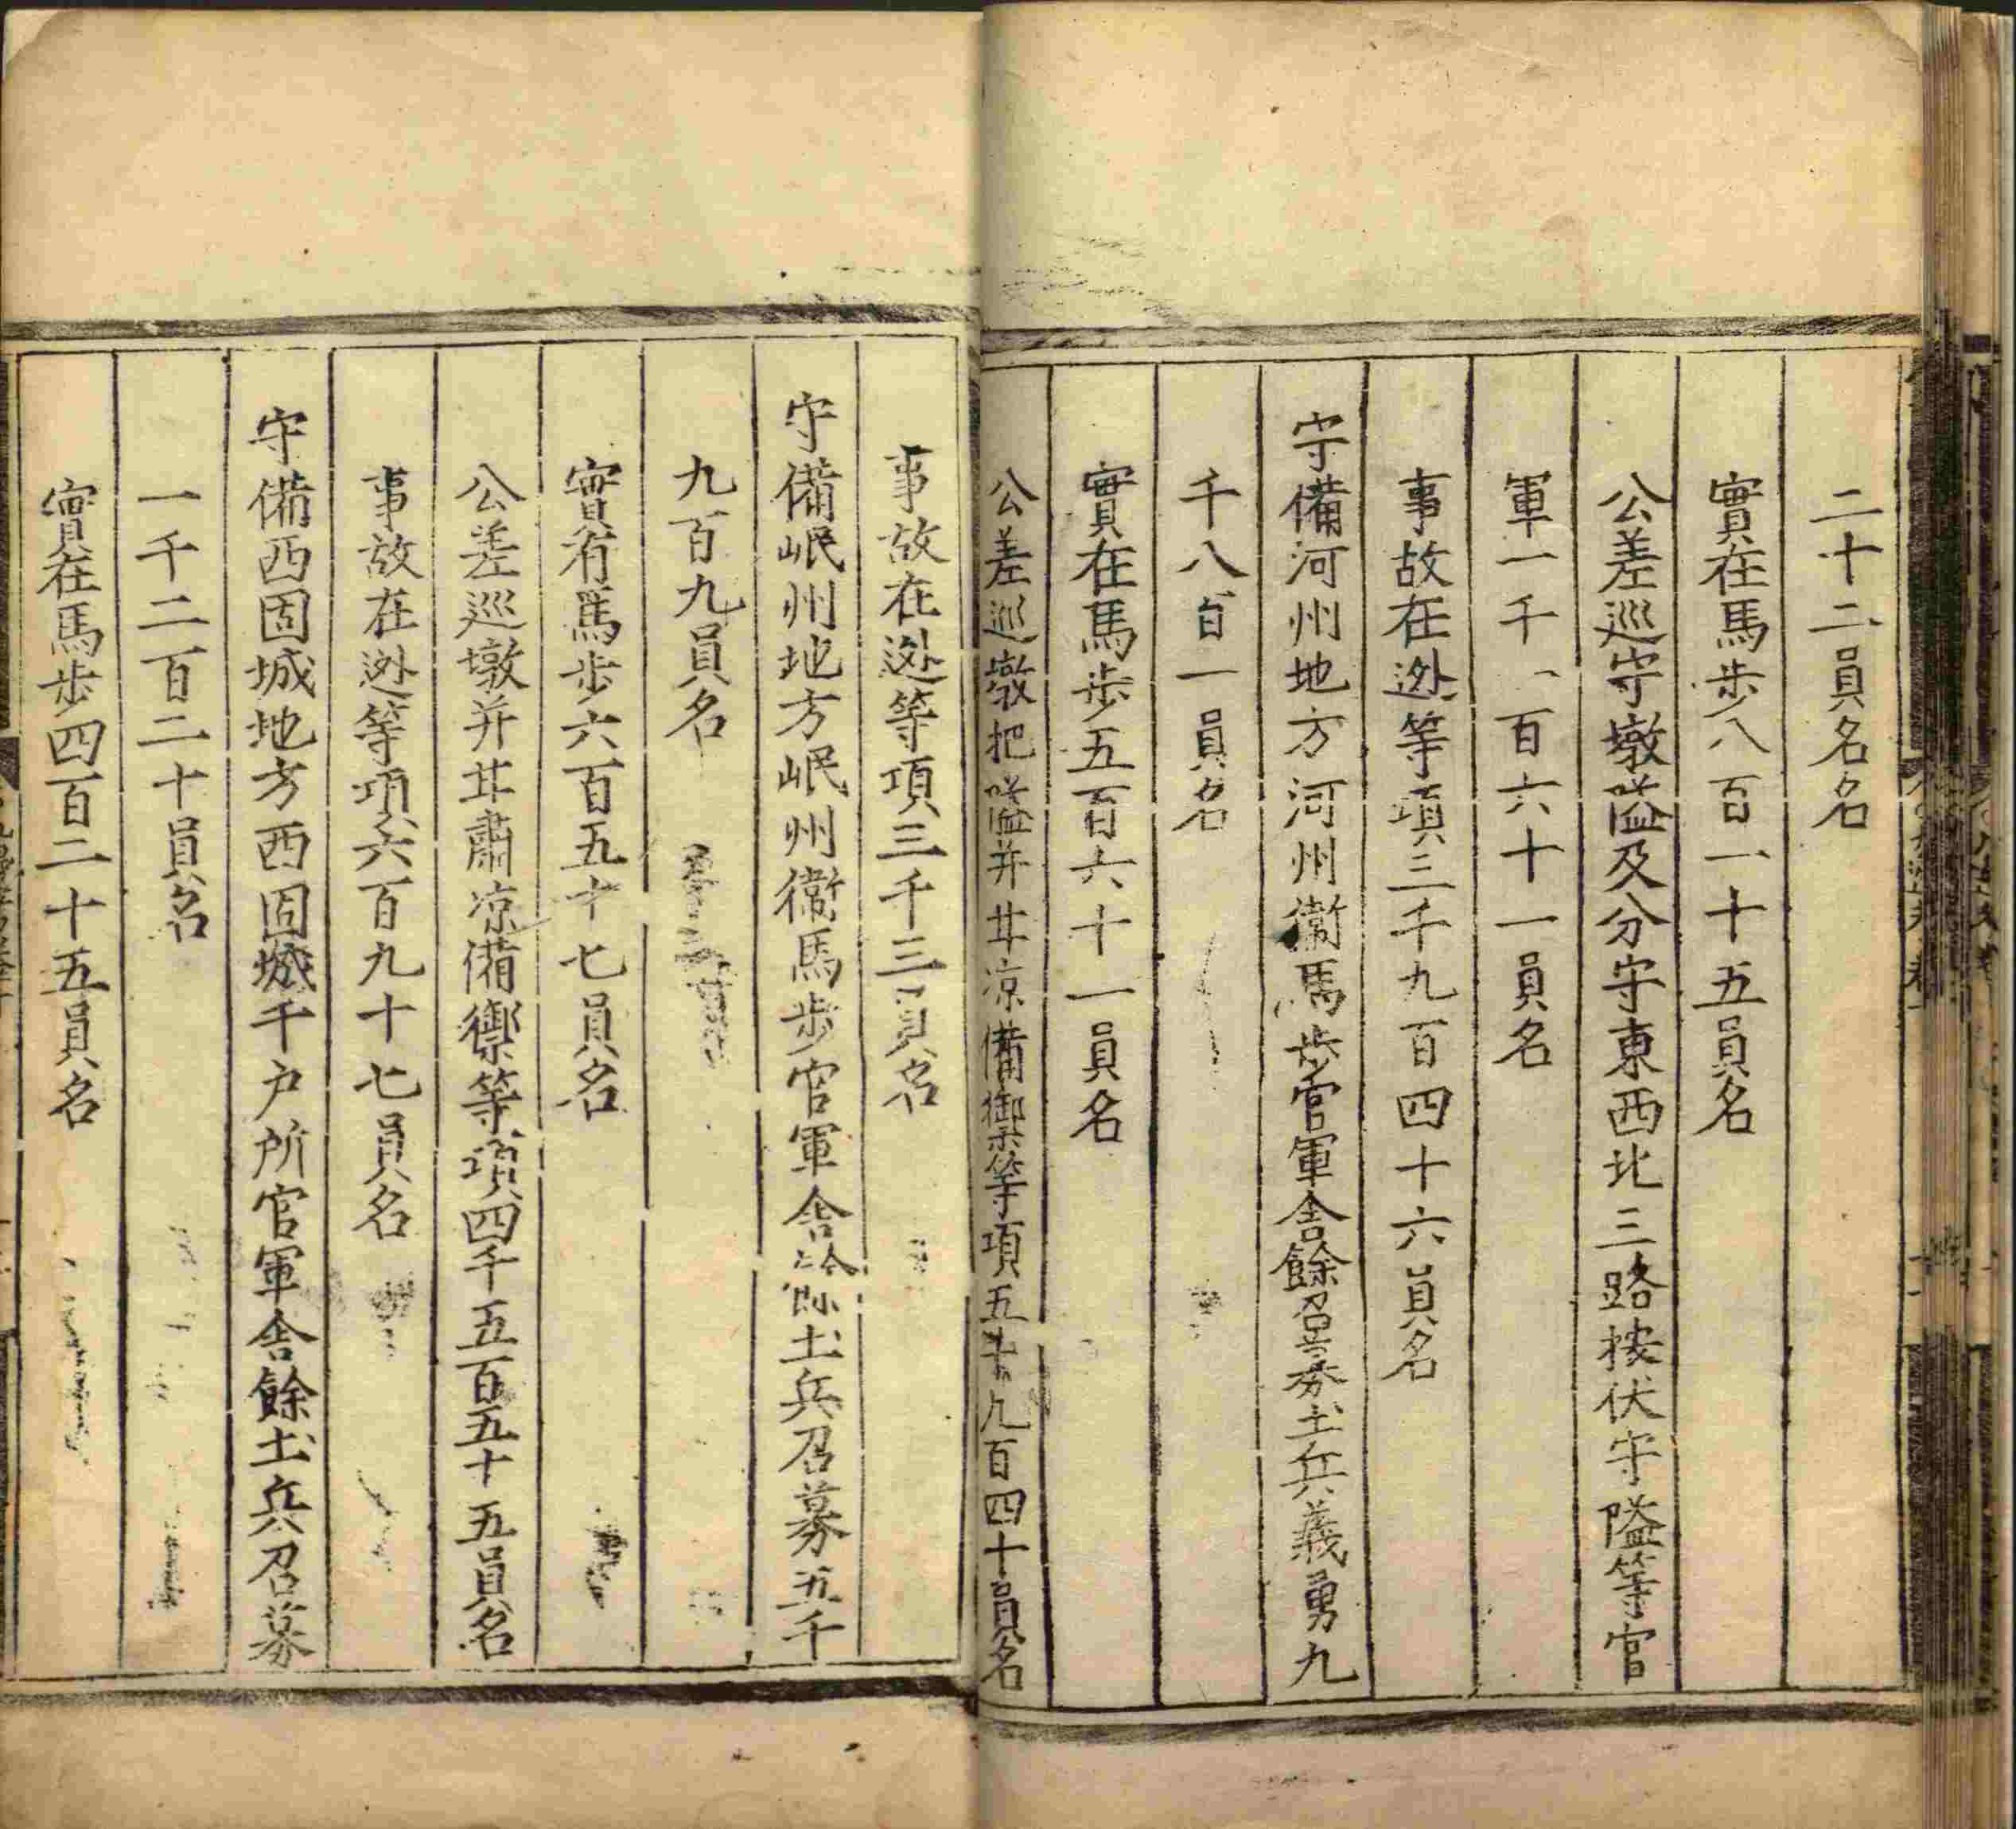 二十二員名名
實在馬步八百一十五員名
公差巡守墩隘及分守東西北三路按伏守隘等官
軍一千一百六十一員名
事故在迯等項三千九百四十六員名
守備河州地方河州衛馬步官軍舍餘召募土兵義勇九
千八百一員名
實在馬步五百六十一員名
公差巡墩把隘并甘凉備禦等項五千九百四十員名
事故在迯等項三千三百員名
守備岷州地方岷州衛馬步官軍舍餘土兵召募五千
九百九員名
實有馬步六百五十七員名
公差巡墩并甘肅凉備禦等項四千五百五十五員名
事故在迯等項六百九十七員名
守備西固城地方西固城千户所官軍舍餘土兵召募
一千二百二十員名
實在馬步四百二十五員名